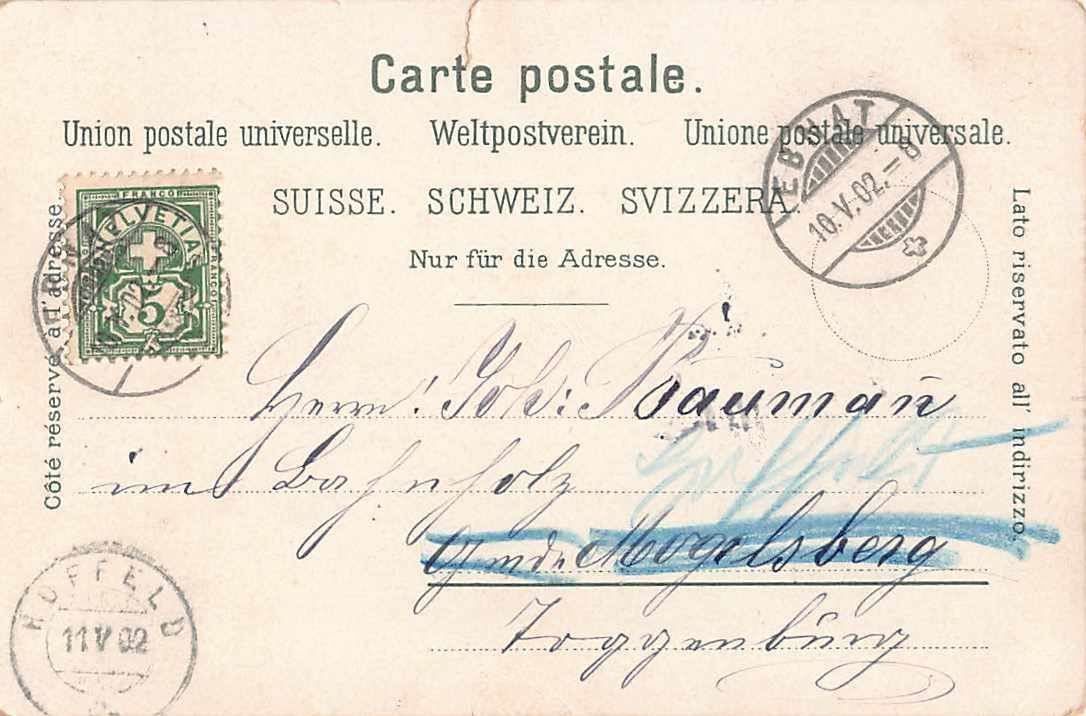 Carte postale.
Union postale universelle. Weltpostverein. Unione postale universale.
SUISSE. SCHWEIZ. SVIZZERA.
Nur für die Adresse.
Côté réservé à l'adresse.
Lato riservato all' indirizzo.
FRANCO
HELVETIA
FRANCO
5
EBNAT
10.V.02.–8
Herrn: Joh: Baumañ
im Bahnholz
Gmde Mogelsberg
Toggenburg
HOFFELD
11 V 02